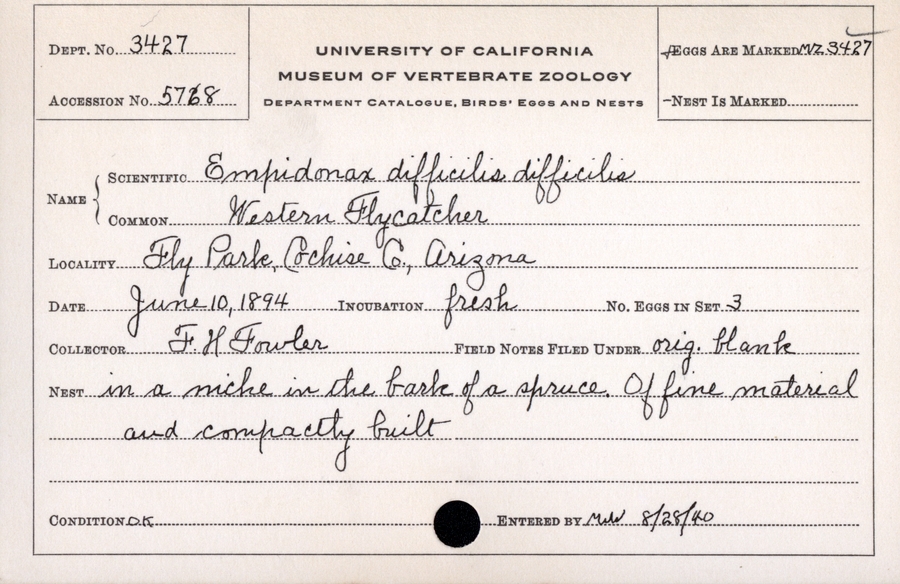 DEPT. No. 3427
UNIVERSITY OF CALIFORNIA
EGGS ARE MARKED MVZ 3427
MUSEUM OF VERTEBRATE ZOOLOGY
ACCESSION No. 5768
DEPARTMENT CATALOGUE, BIRDS' EGGS AND NESTS
NEST IS MARKED
NAME
SCIENTIFIC Empidonax difficilis difficilis
COMMON Western Flycatcher
LOCALITY Fly Park, Cochise Co., Arizona
DATE June 10, 1894 INCUBATION fresh No. EGGS IN SET 3
COLLECTOR F. H Fowler FIELD NOTES FILED UNDER orig. blank
NEST in a niche in the bark of a spruce. Of fine material
and compactly built
CONDITION OK ENTERED BY 8/28/40